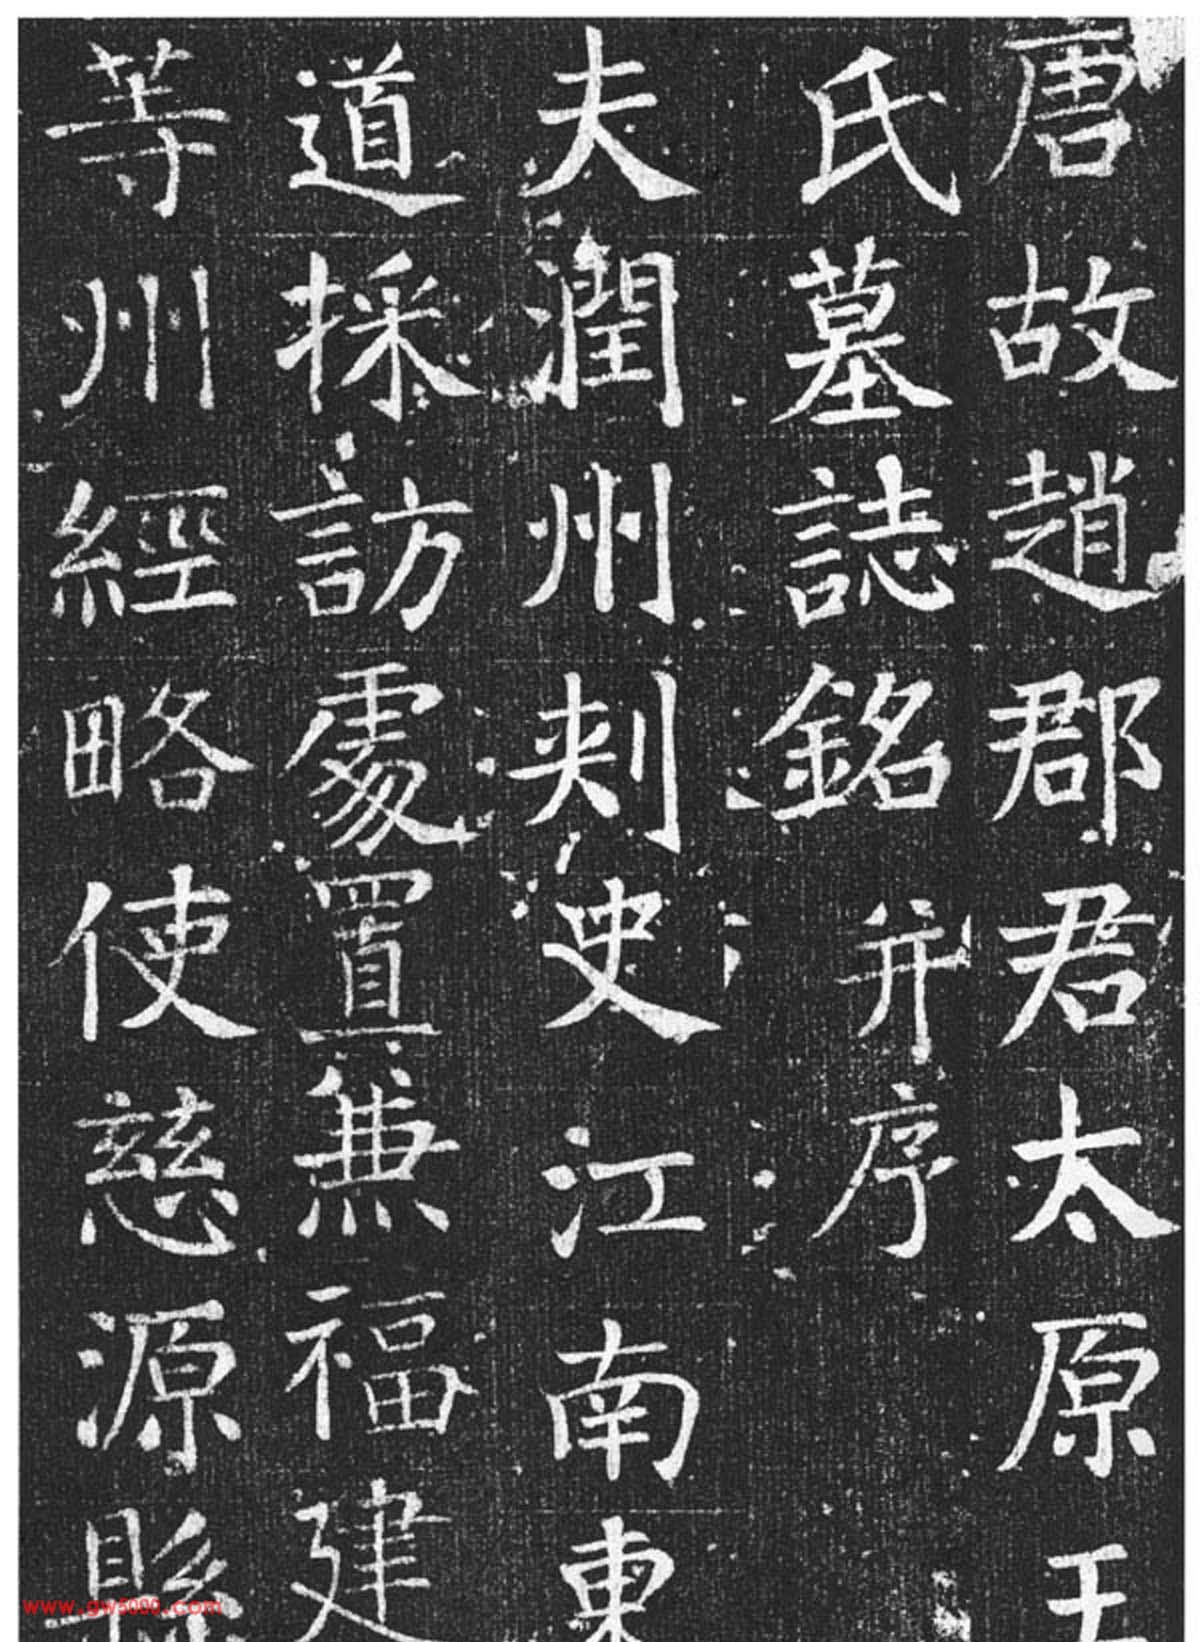 唐故趙郡君太原王
氏墓誌銘并序
夫潤州刺史江南東
道採訪處置兼福建
等州經略使慈源縣
www.gw5000.com